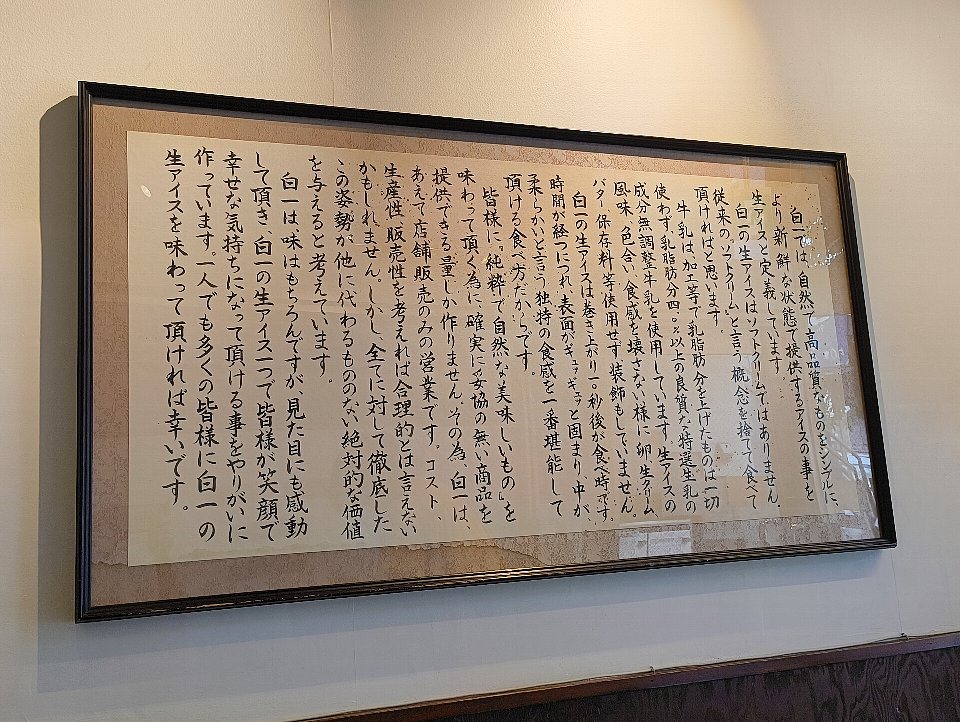 白一では、自然で高品質なものをシンプルに、
より新鮮な状態で提供するアイスの事を
生アイスと定義しています。
白一の生アイスはソフトクリームではありません。
従来の「ソフトクリーム」と言う概念を捨てて食べて
頂ければと思います。
牛乳は、加工等で乳脂肪分を上げたものは一切
使わず、乳脂肪分四.〇%以上の良質な特選生乳の
成分無調整牛乳を使用しています。生アイスの
風味、色合い、食感を壊さない様に、卵、生クリーム、
バター、保存料、等使用せず、装飾もしていません。
白一の生アイスは巻き上がり一〇秒後が食べ時です。
時間が経つにつれ、表面がギュッギュッと固まり、中が、
柔らかいと言う独特の食感を一番堪能して
頂ける食べ方だからです。
皆様に「純粋で自然な美味しいもの」を
味わって頂く為に、確実に妥協の無い商品を
提供できる量しか作りません。その為、白一は、
あえて店舗販売のみの営業です。コスト、
生産性、販売性を考えれば合理的とは言えない
かもしれません。しかし、全てに対して徹底した
この姿勢が他に代わるもののない絶対的な価値
を与えると考えています。
白一は、味はもちろんですが、見た目にも感動
して頂き、白一の生アイス一つで皆様が笑顔で
幸せな気持ちになって頂ける事をやりがいに
作っています。一人でも多くの皆様に白一の
生アイスを味わって頂ければ幸いです。